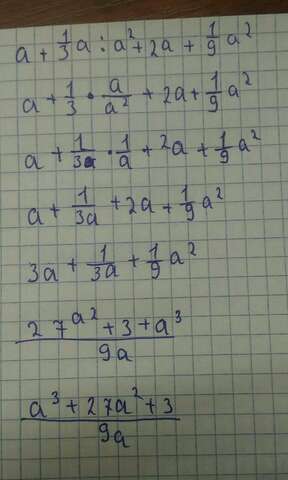 a + 1/3 a : a² + 2a + 1/9 a²
a + 1/3 · a/a² + 2a + 1/9 a²
a + 1/3a · 1/a + 2a + 1/9 a²
a + 1/3a + 2a + 1/9 a²
3a + 1/3a + 1/9 a²
(27^a² + 3 + a³)/9a
(a³ + 27a² + 3)/9a